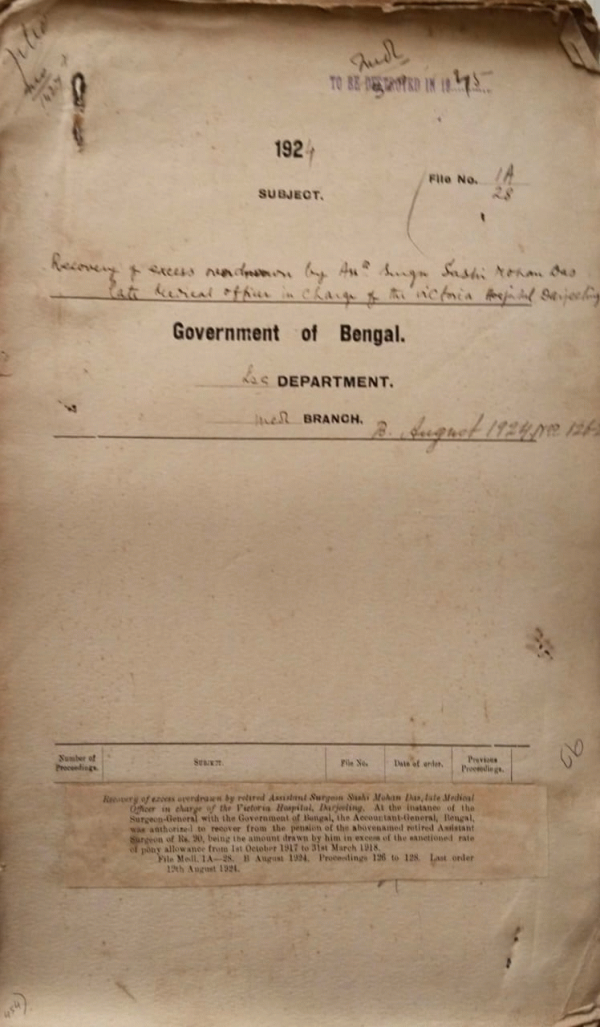 Medl
TO BE DESTROYED IN 19 25
1924
File No. 1A
28
SUBJECT.
Recovery of excess overdrawn by Asst. Surgn Sashi Mohan Das
late Medical Officer in Charge of the Victoria Hospital Darjeeling
Government of Bengal.
DEPARTMENT.
Medl BRANCH.
B. August 1924
Number of Proceedings. Subject. File No. Date of order. Previous Proceedings.
Recovery of excess overdrawn by retired Assistant Surgeon Sashi Mohan Das, late Medical
Officer in charge of the Victoria Hospital, Darjeeling. At the instance of the
Surgeon-General with the Government of Bengal, the Accountant-General, Bengal,
was authorized to recover from the pension of the abovenamed retired Assistant
Surgeon of Rs. 20, being the amount drawn by him in excess of the sanctioned rate
of pony allowance from 1st October 1917 to 31st March 1918.
File Medl. 1A—28. B August 1924. Proceedings 126 to 128. Last order
12th August 1924.
56